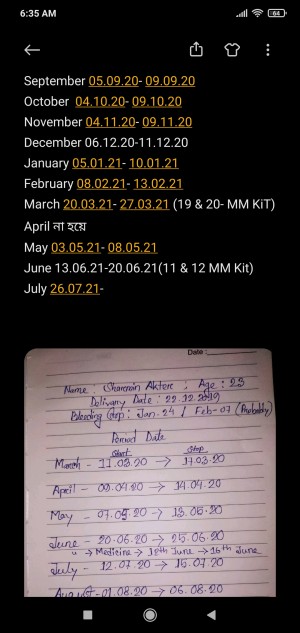 6:35 AM
64
September 05.09.20- 09.09.20
October 04.10.20- 09.10.20
November 04.11.20- 09.11.20
December 06.12.20-11.12.20
January 05.01.21- 10.01.21
February 08.02.21- 13.02.21
March 20.03.21- 27.03.21 (19 & 20- MM KiT)
April না হয়ে
May 03.05.21- 08.05.21
June 13.06.21-20.06.21(11 & 12 MM Kit)
July 26.07.21-
Date :
Name : Sharmin Akter ; Age : 23
Delivary Date : 22.12.2019
Bleeding Stop : Jan-24 / Feb-07 (Probably)
Period Date
Start Stop
March - 11.03.20 → 17.03.20
April - 09.04.20 → 14.04.20
May - 07.05.20 → 13.05.20
June - 20.06.20 → 25.06.20
" → Medicine → 12th June → 16th June
July - 12.07.20 → 15.07.20
August - 01.08.20 → 06.08.20